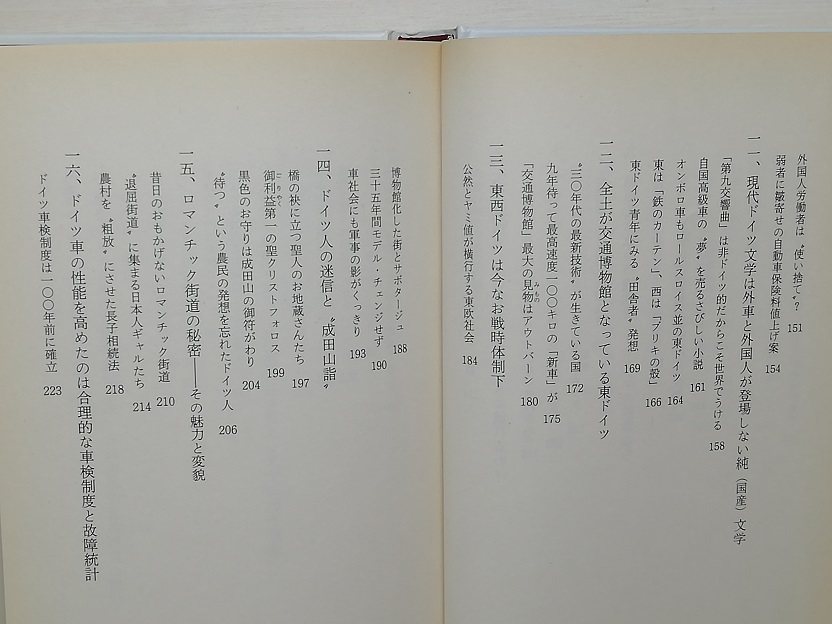 外国人労働者は〝使い捨て〟? 151
弱者に皺寄せの自動車保険料値上げ案 154
一一、現代ドイツ文学は外車と外国人が登場しない純(国産)文学
「第九交響曲」は非ドイツ的だからこそ世界でうける 158
自国高級車の〝夢〟を売るさびしい小説 161
オンボロ車もロールスロイス並の東ドイツ 164
東は「鉄のカーテン」、西は「ブリキの殻」 166
東ドイツ青年にみる〝田舎者〟発想 169
一二、全土が交通博物館となっている東ドイツ
〝三〇年代の最新技術〟が生きている国 172
九年待って最高速度一〇〇キロの「新車」が 175
「交通博物館」最大の見物はアウトバーン 180
みもの
一三、東西ドイツは今なお戦時体制下
公然とヤミ値が横行する東欧社会 184
博物館化した街とサボタージュ 188
三十五年間モデル・チェンジせず 190
車社会にも軍事の影がくっきり 193
一四、ドイツ人の迷信と〝成田山詣〟
橋の袂に立つ聖人のお地蔵さんたち 197
御利益第一の聖クリストフォロス 199
ごりやく
黒色のお守りは成田山の御符がわり 204
〝待つ〟という農民の発想を忘れたドイツ人 206
一五、ロマンチック街道の秘密――その魅力と変貌
昔日のおもかげないロマンチック街道 210
〝退屈街道〟に集まる日本人ギャルたち 214
農村を〝粗放〟にさせた長子相続法 218
一六、ドイツ車の性能を高めたのは合理的な車検制度と故障統計
ドイツ車検制度は一〇〇年前に確立 223